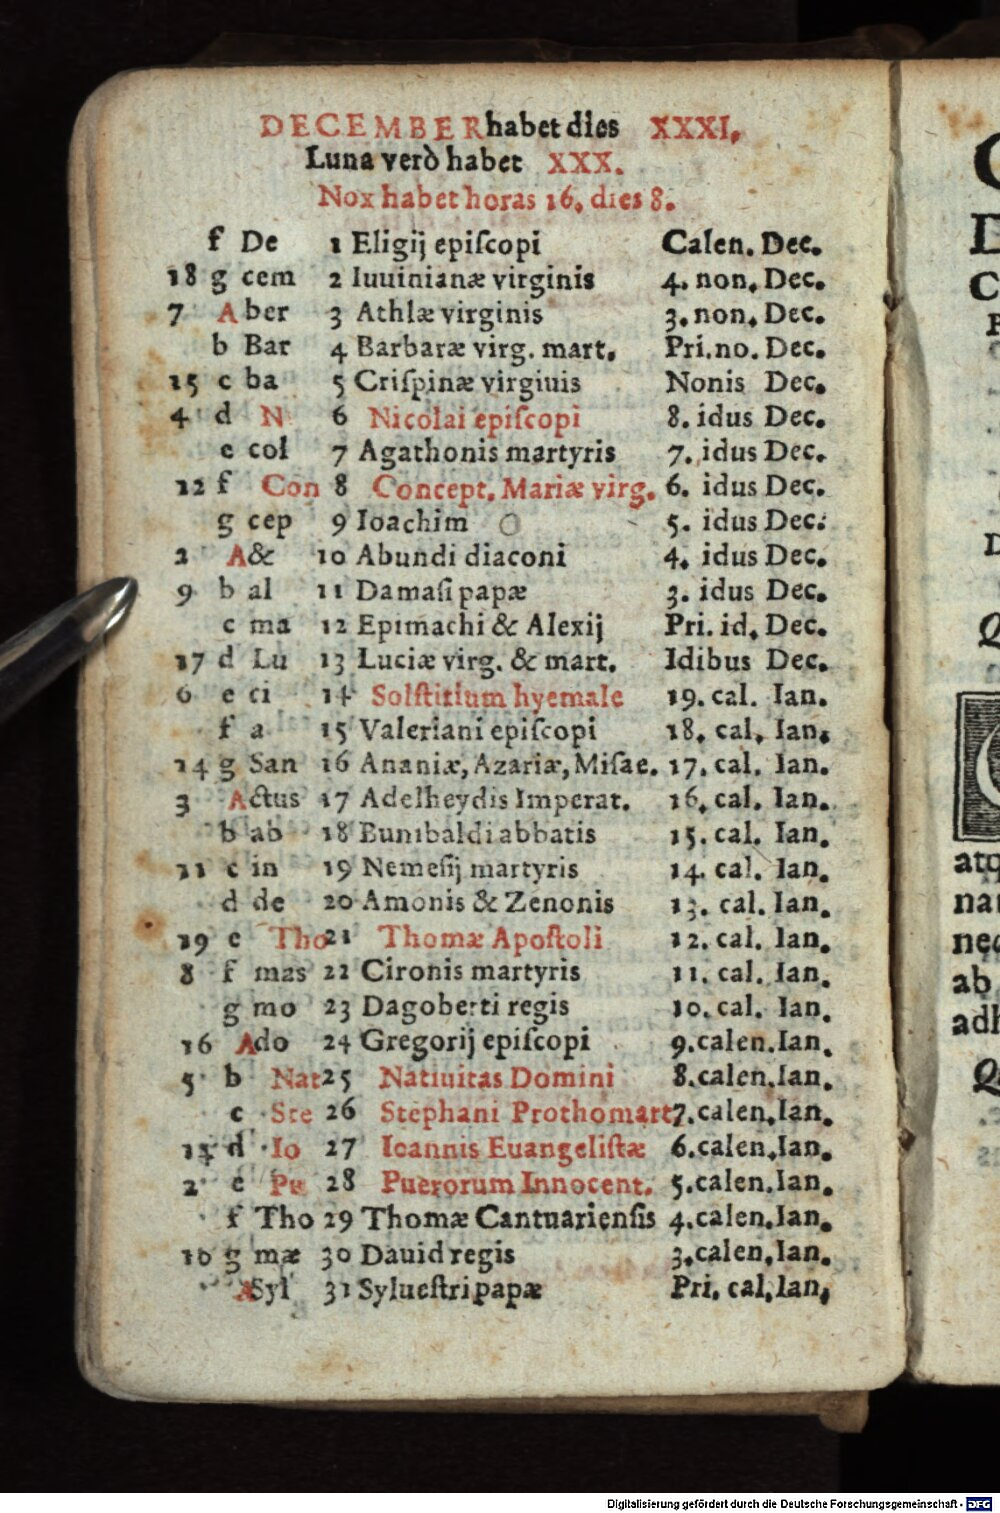 DECEMBER habet dies XXXI.
Luna verò habet XXX.
Nox habet horas 16. dies 8.
f De 1 Eligij epiſcopi Calen. Dec.
18 g cem 2 Iuuinianæ virginis 4. non. Dec.
7 A ber 3 Athlæ virginis 3. non. Dec.
b Bar 4 Barbaræ virg. mart. Pri. no. Dec.
15 c ba 5 Criſpinæ virgiuis Nonis Dec.
4 d N 6 Nicolai epiſcopi 8. idus Dec.
e col 7 Agathonis martyris 7. idus Dec.
12 f Con 8 Concept. Mariæ virg. 6. idus Dec.
g cep 9 Ioachim 5. idus Dec.
2 A & 10 Abundi diaconi 4. idus Dec.
9 b al 11 Damaſi papæ 3. idus Dec.
c ma 12 Epimachi & Alexij Pri. id. Dec.
17 d Lu 13 Luciæ virg. & mart. Idibus Dec.
6 e ci 14 Solſtitium hyemale 19. cal. Ian.
f a 15 Valeriani epiſcopi 18. cal. Ian.
14 g San 16 Ananiæ, Azariæ, Miſae. 17. cal. Ian.
3 A ctus 17 Adelheydis Imperat. 16. cal. Ian.
b ab 18 Eunibaldi abbatis 15. cal. Ian.
11 c in 19 Nemeſij martyris 14. cal. Ian.
d de 20 Amonis & Zenonis 13. cal. Ian.
19 e Tho 21 Thomæ Apoſtoli 12. cal. Ian.
8 f mas 22 Cironis martyris 11. cal. Ian.
g mo 23 Dagoberti regis 10. cal. Ian.
16 A do 24 Gregorij epiſcopi 9. calen. Ian.
5 b Nat 25 Natiuitas Domini 8. calen. Ian.
c Ste 26 Stephani Prothomart 7. calen. Ian.
d Io 27 Ioannis Euangeliſtæ 6. calen. Ian.
2 e Pu 28 Puerorum Innocent. 5. calen. Ian.
f Tho 29 Thomæ Cantuarienſis 4. calen. Ian.
10 g mæ 30 Dauid regis 3. calen. Ian.
A Syl 31 Sylueſtri papæ Pri. cal. Ian.
Digitalisierung gefördert durch die Deutsche Forschungsgemeinschaft - DFG